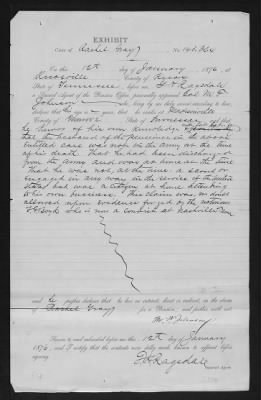 EXHIBIT
Case of Rachel Gray, No. 145.264
On this 12th day of January, 1876, at
Knoxville County of Knox
State of Tennessee before me, G. H. Ragsdale
a Special Agent of the Pension Office, personally appeared Col. M. F.
Johnson who, being by me duly sworn according to law,
deposes that he is years; that he resides at
County of Monroe State of Tennessee
he knows of his own knowledge
that the husband of the pensioner in the above
entitled case was not in the army at the time
of his death. That he had been discharged
from the army and was at home at the time
That he was not, at the time a scout or
engaged in any way in the service of the United
States but was a citizen at home attending
to his own business. This claim was no doubt
allowed upon evidence forged by the notorious
who is now a convict at Nashville Tenn
and he further declares that he has no interest, direct or indirect, in the claim
of Rachel Gray for a Pension; and further saith not.
Sworn to and subscribed before me this 12th day of January
1876, and I certify that the contents were fully made known to affiant before
signing.
G. H. Ragsdale
Special Agent.